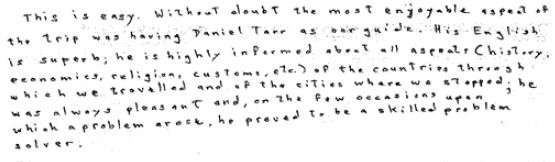 This is easy. Without doubt the most enjoyable aspect of
the trip was having Daniel Tarr as our guide. His English
is superb; he is highly informed about all aspects (history,
economics, religion, customs, etc.) of the countries through
which we travelled and of the cities where we stopped; he
was always pleasant and, on the few occasions upon
which a problem arose, he proved to be a skilled problem
solver.